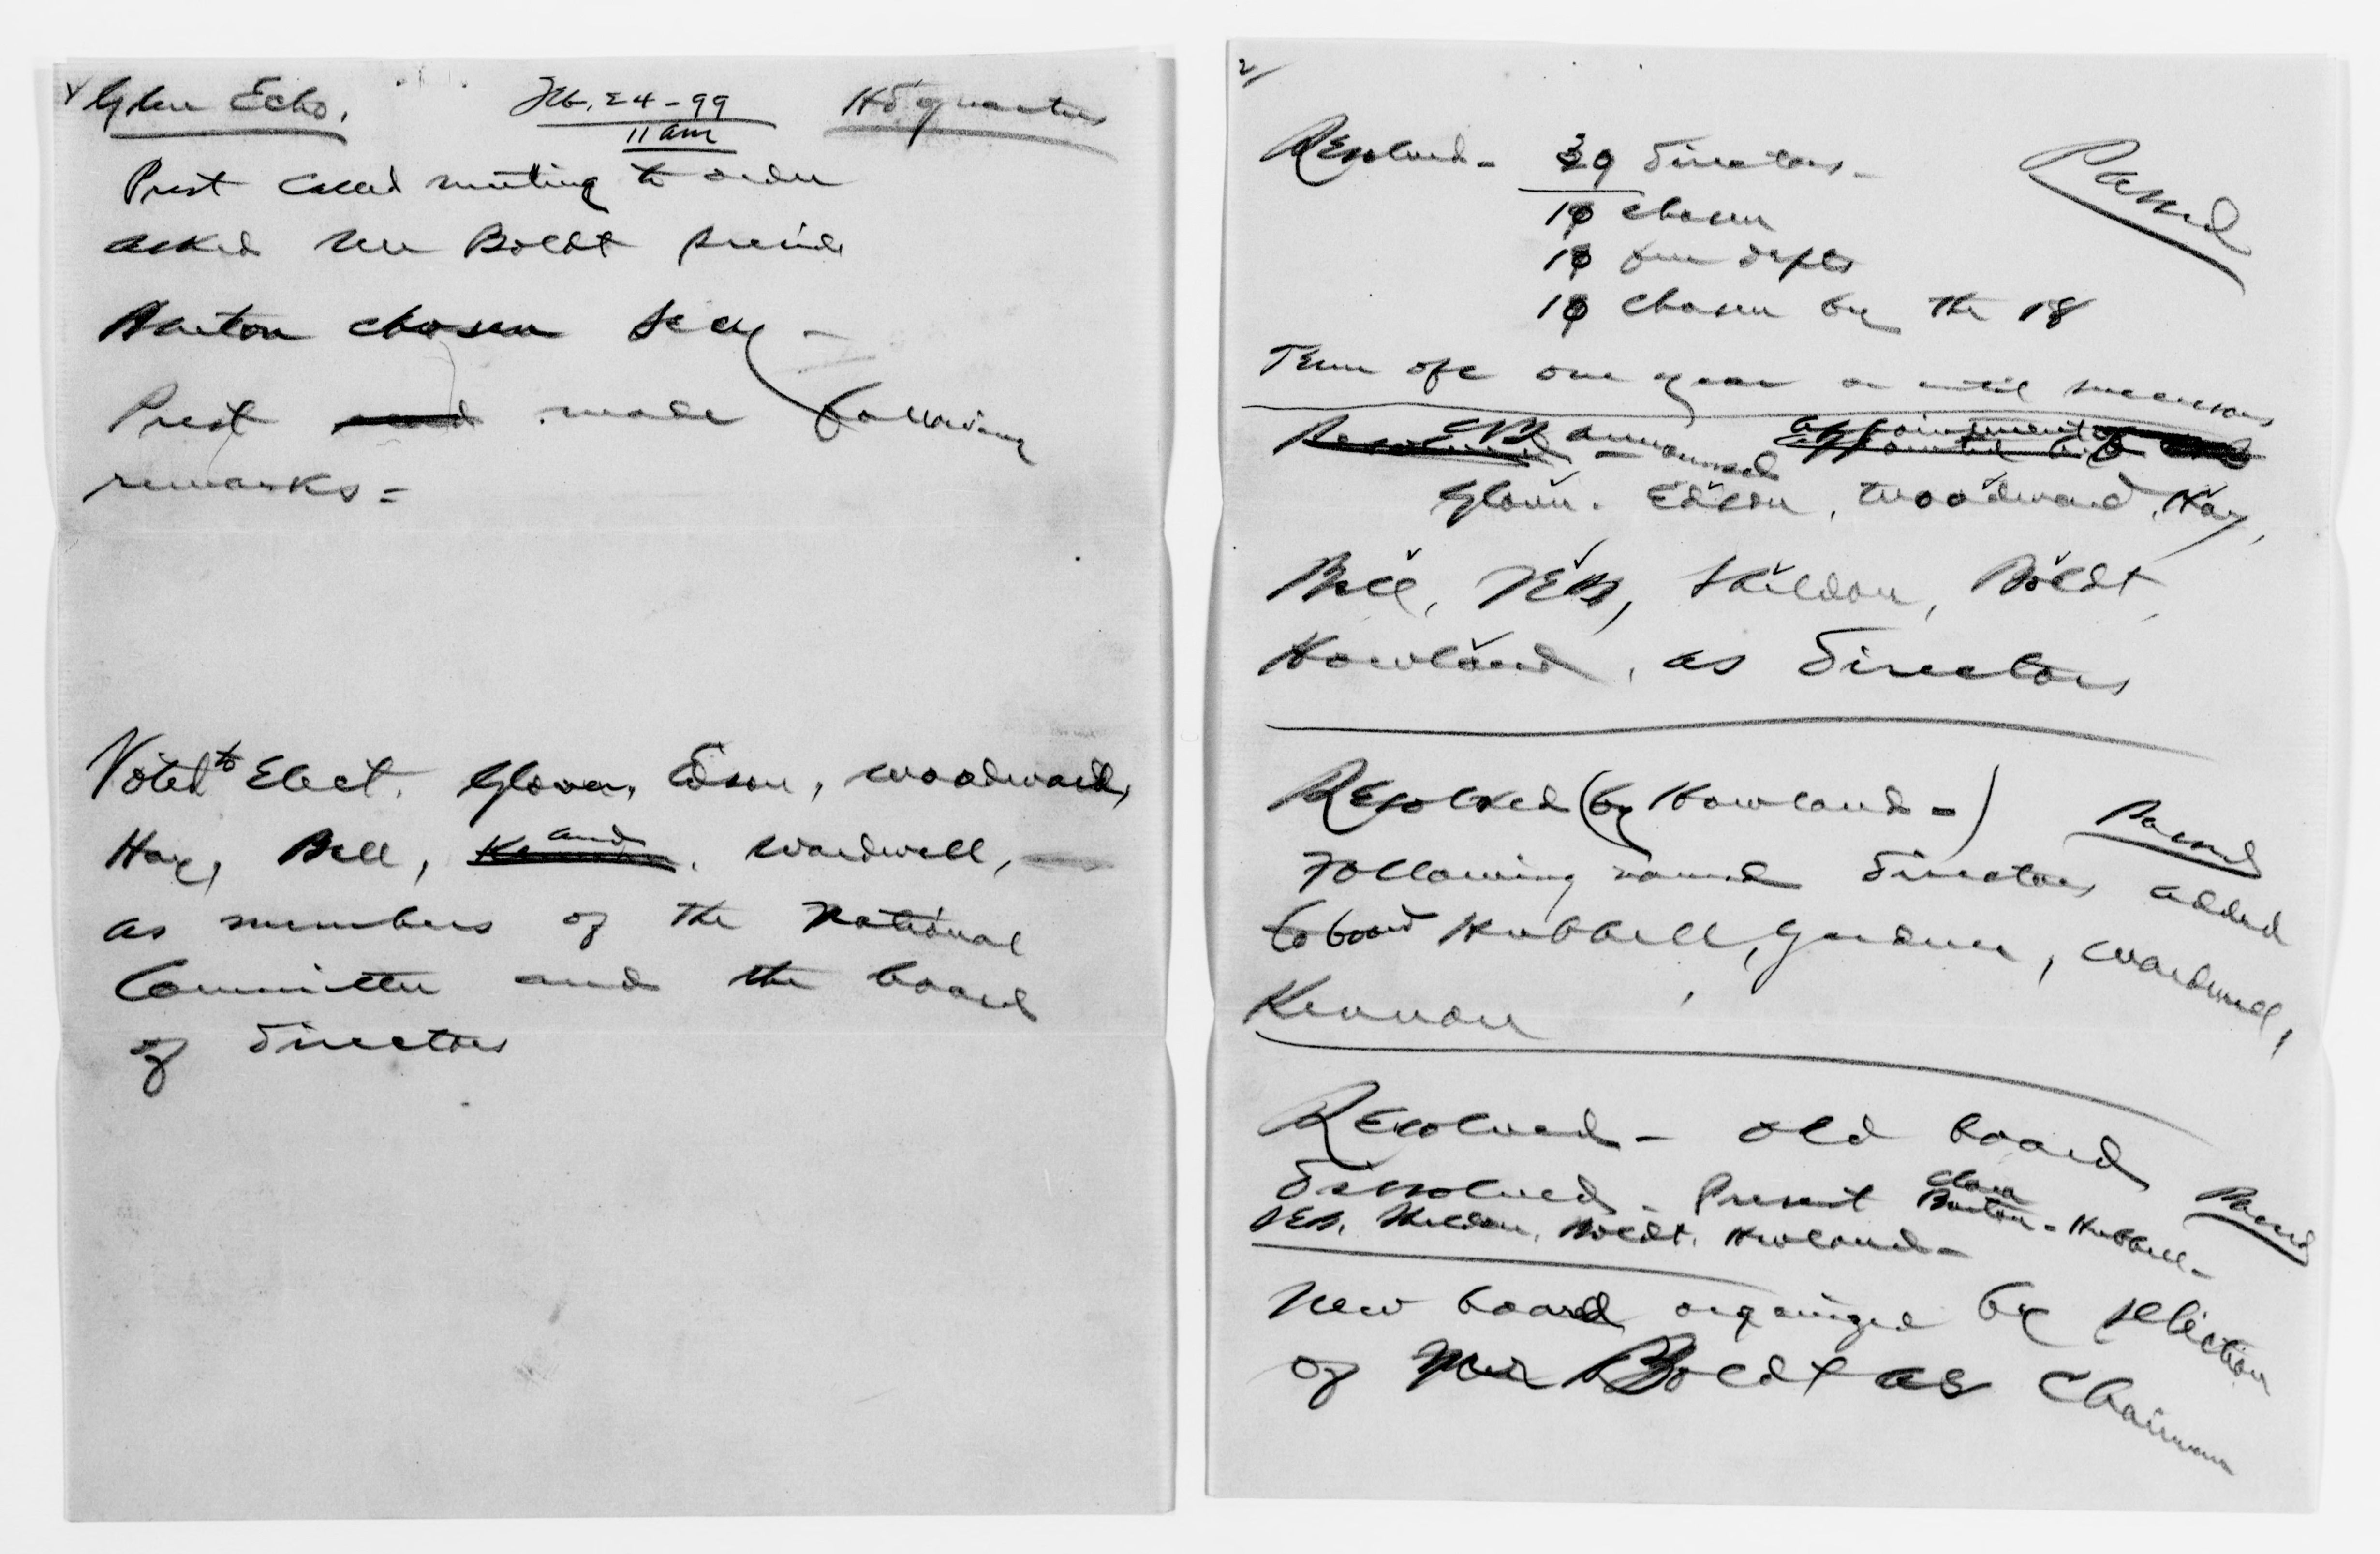 Glen Echo. Feb. 24-99 Hdquarters
11 am
Prest called meeting to order
asked Mr Boldt preside
Barton chosen Secy -
Prest read made following
remarks =
Voted to Elect. Glover, Edson, Woodward,
Hay, Bell, and Wardwell, —
as members of the National
Committee and the board
of directors
2/
Resolved - 39 directors - Passed
chosen
from depts
chosen by the 18
Term ofc one year or until successors
CB announced appointments
Glover. Edson, Woodward, Hay,
Bell, Sheldon, Boldt,
Howland, as directors
Resolved (by Howland -) Passed
Following named directors added
to board Hubbell, Gardner, Wardwell,
Kennan
Resolved - old board
dissolved - Present Clara Barton - Hubbell - Passed
Sheldon, Boldt, Howland -
New board organized by selection
of Mr Boldt as Chairman